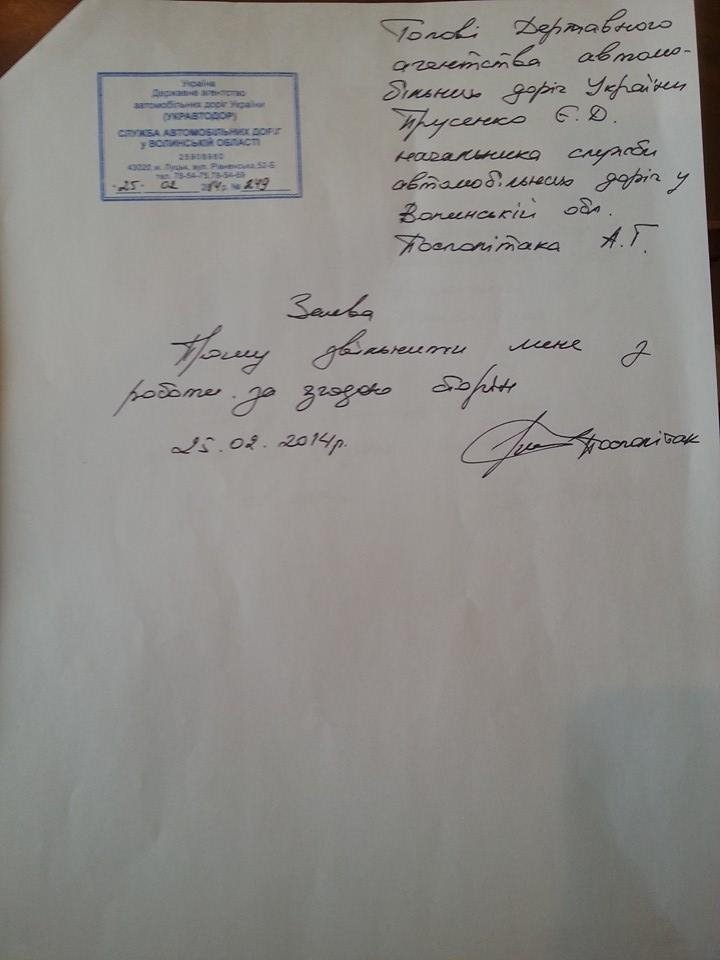 Україна
Державне агентство
автомобільних доріг України
(УКРАВТОДОР)
СЛУЖБА АВТОМОБІЛЬНИХ ДОРІГ
у ВОЛИНСЬКІЙ ОБЛАСТІ
25908960
43020 м. Луцьк, вул. Рівненська,52-Б
тел. 78-54-75,78-54-69
25. 02 2014 р. № 249
Голові Державного
агентства автомо-
більних доріг України
Прусенко Є. Д.
начальника служби
автомобільних доріг у
Волинській обл.
Посполітака А. Г.
Заява
Прошу звільнити мене з
роботи за згодою сторін
25.02.2014р.
Посполітак